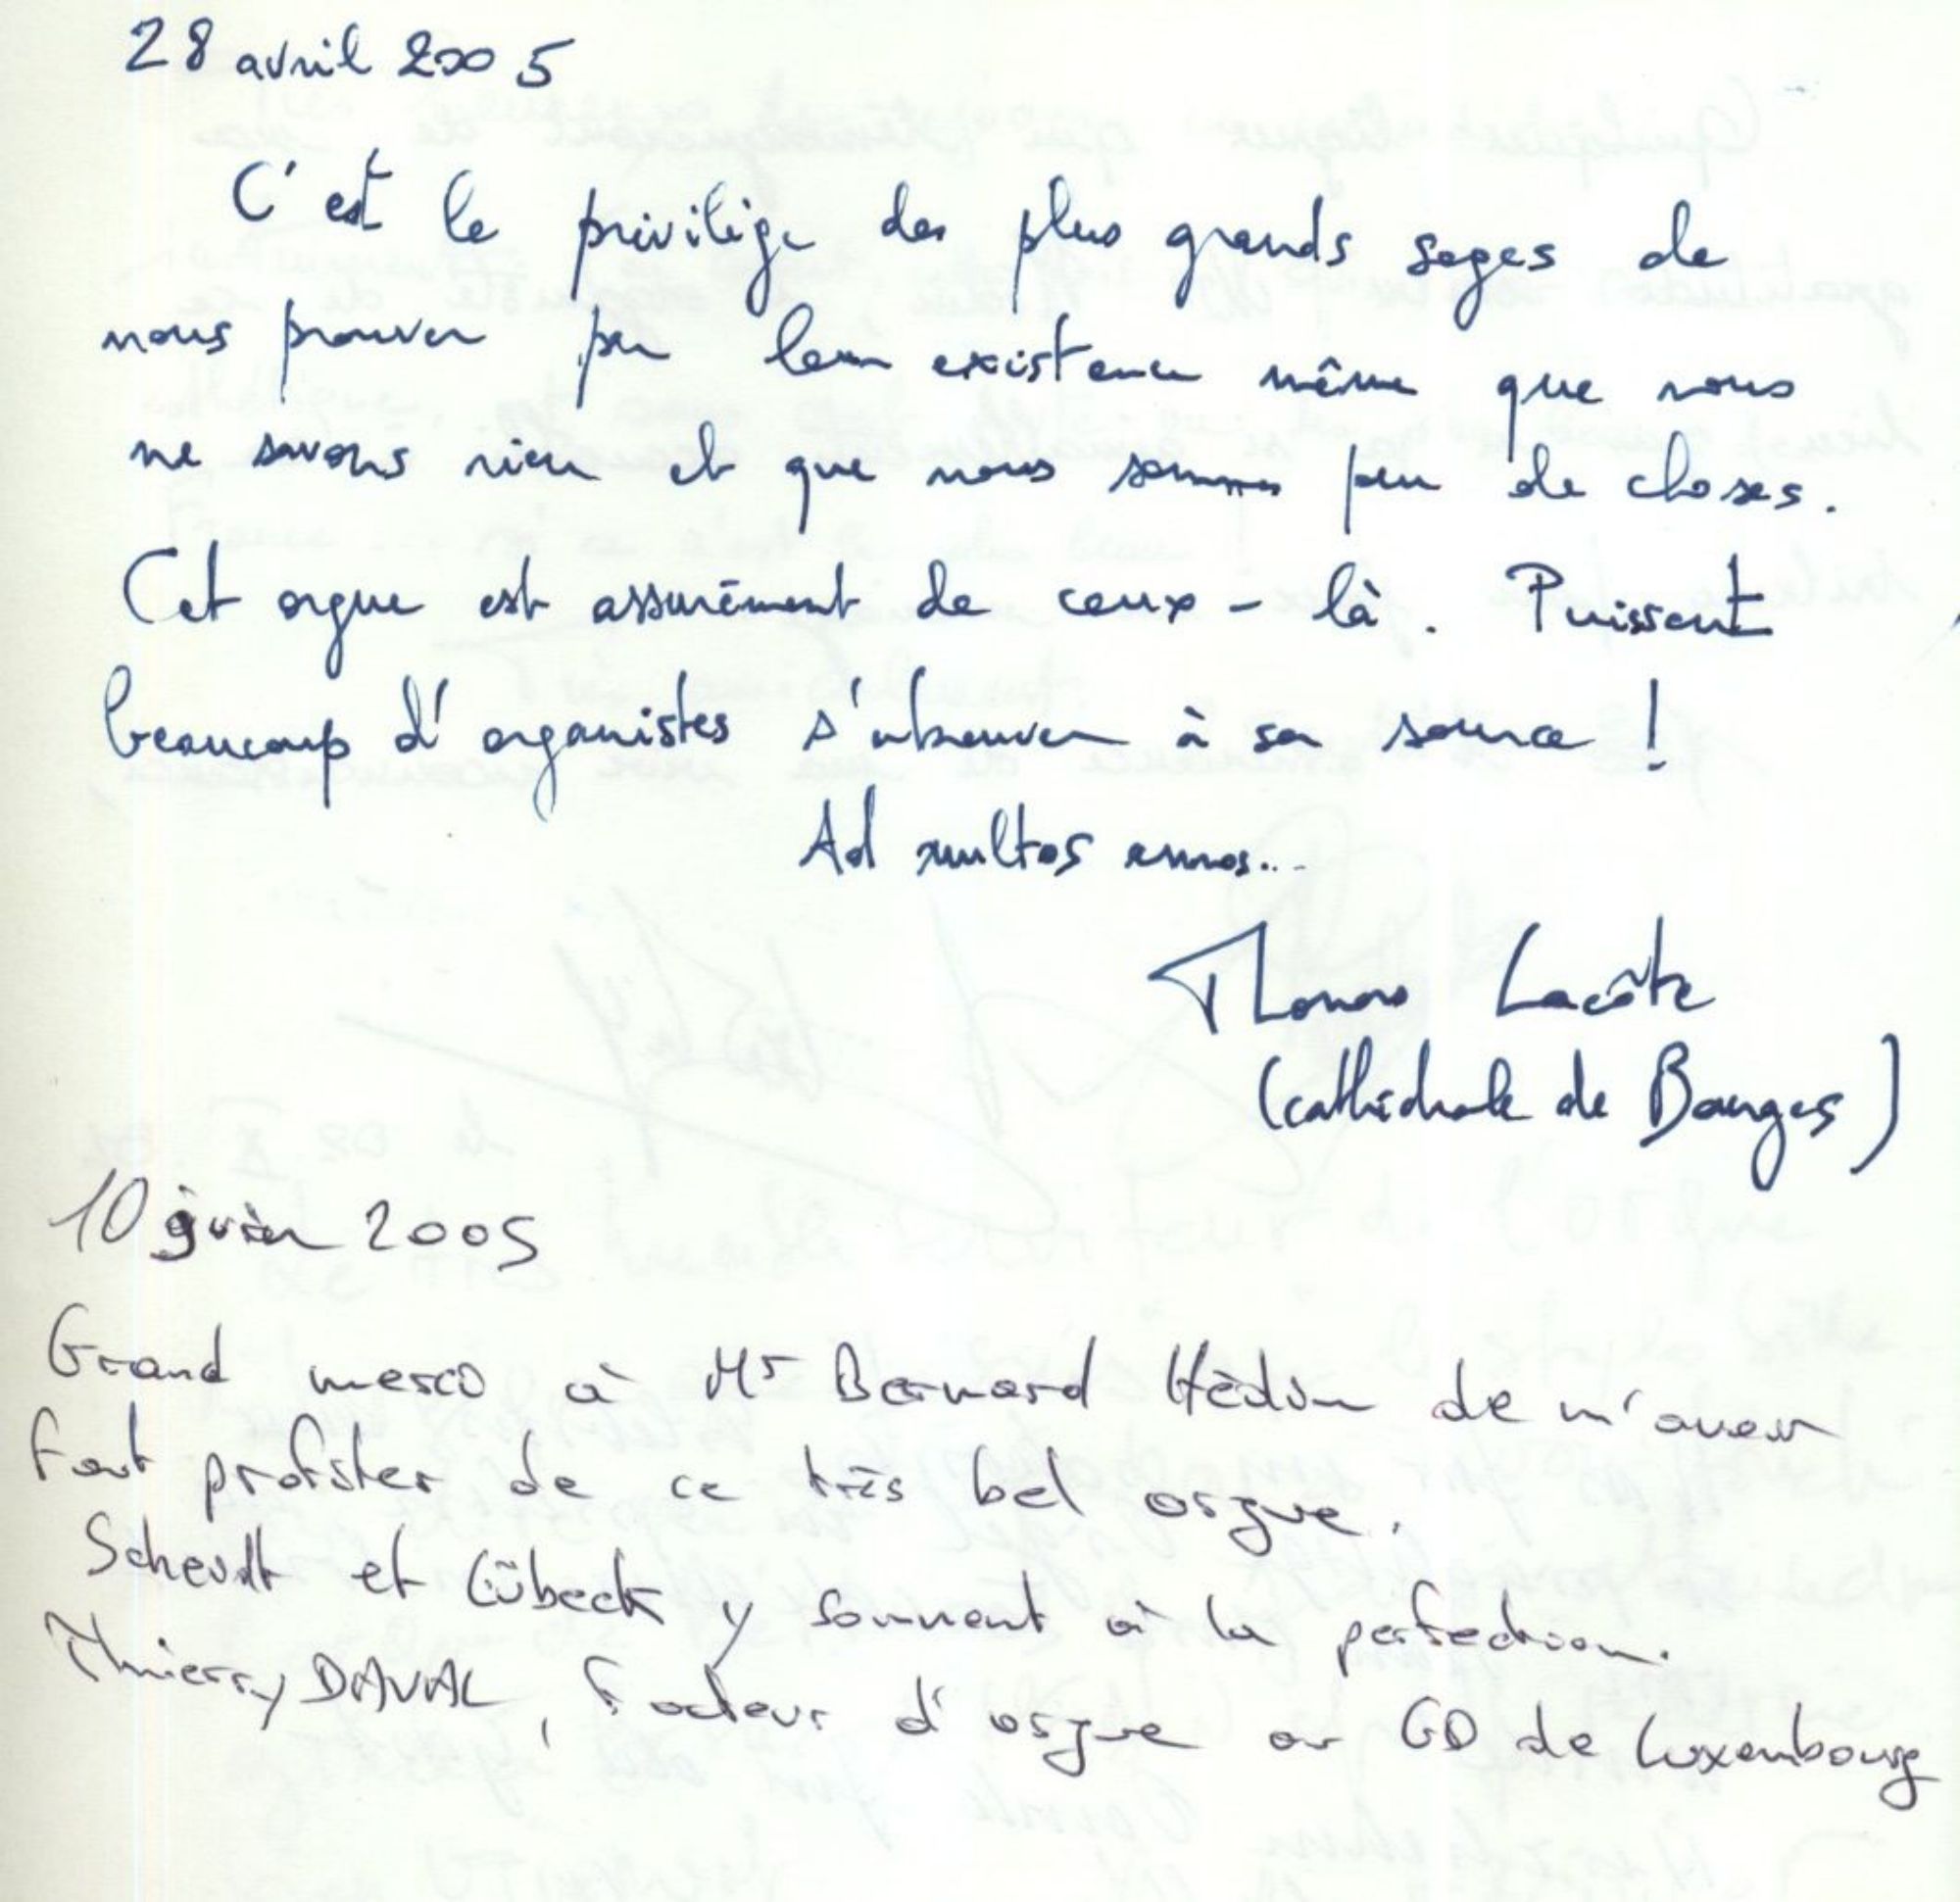 28 avril 2005
C'est le privilège des plus grands sages de
nous prouver par leur existence même que nous
ne savons rien et que nous sommes peu de choses.
Cet orgue est assurément de ceux-là. Puissent
beaucoup d'organistes s'abreuver à sa source !
Ad multos annos...
Thomas Lacôte
(cathédrale de Bourges)
10 juin 2005
Grand merci à Mr Bernard Hédin de m'avoir
fait profiter de ce très bel orgue.
Scheidt et Lübeck y sonnent à la perfection.
Thierry DAVAL, facteur d'orgue au GD de Luxembourg